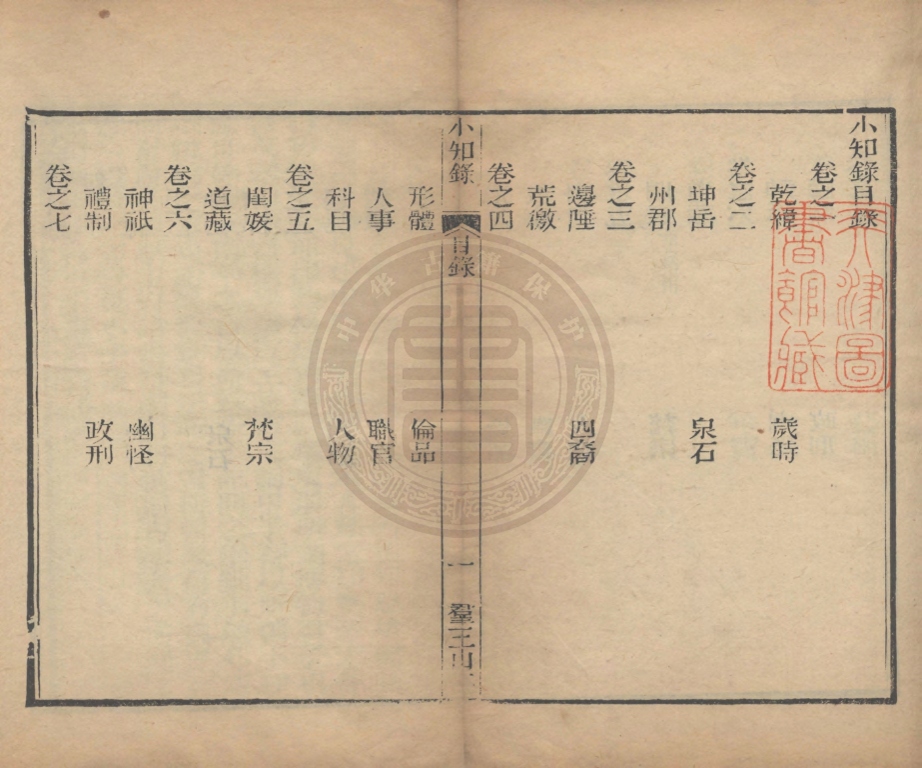 小知錄目錄
卷之一
乾緯 歲時
卷之二
坤岳 泉石
州郡
卷之三
邊陲 四裔
荒徼
卷之四
小知錄 目錄 一
形體 倫品
人事 職官
科目 人物
卷之五
閨媛 梵宗
道藏
卷之六
神祇 幽怪
禮制 政刑
卷之七
天津圖書館藏
中华古籍保护